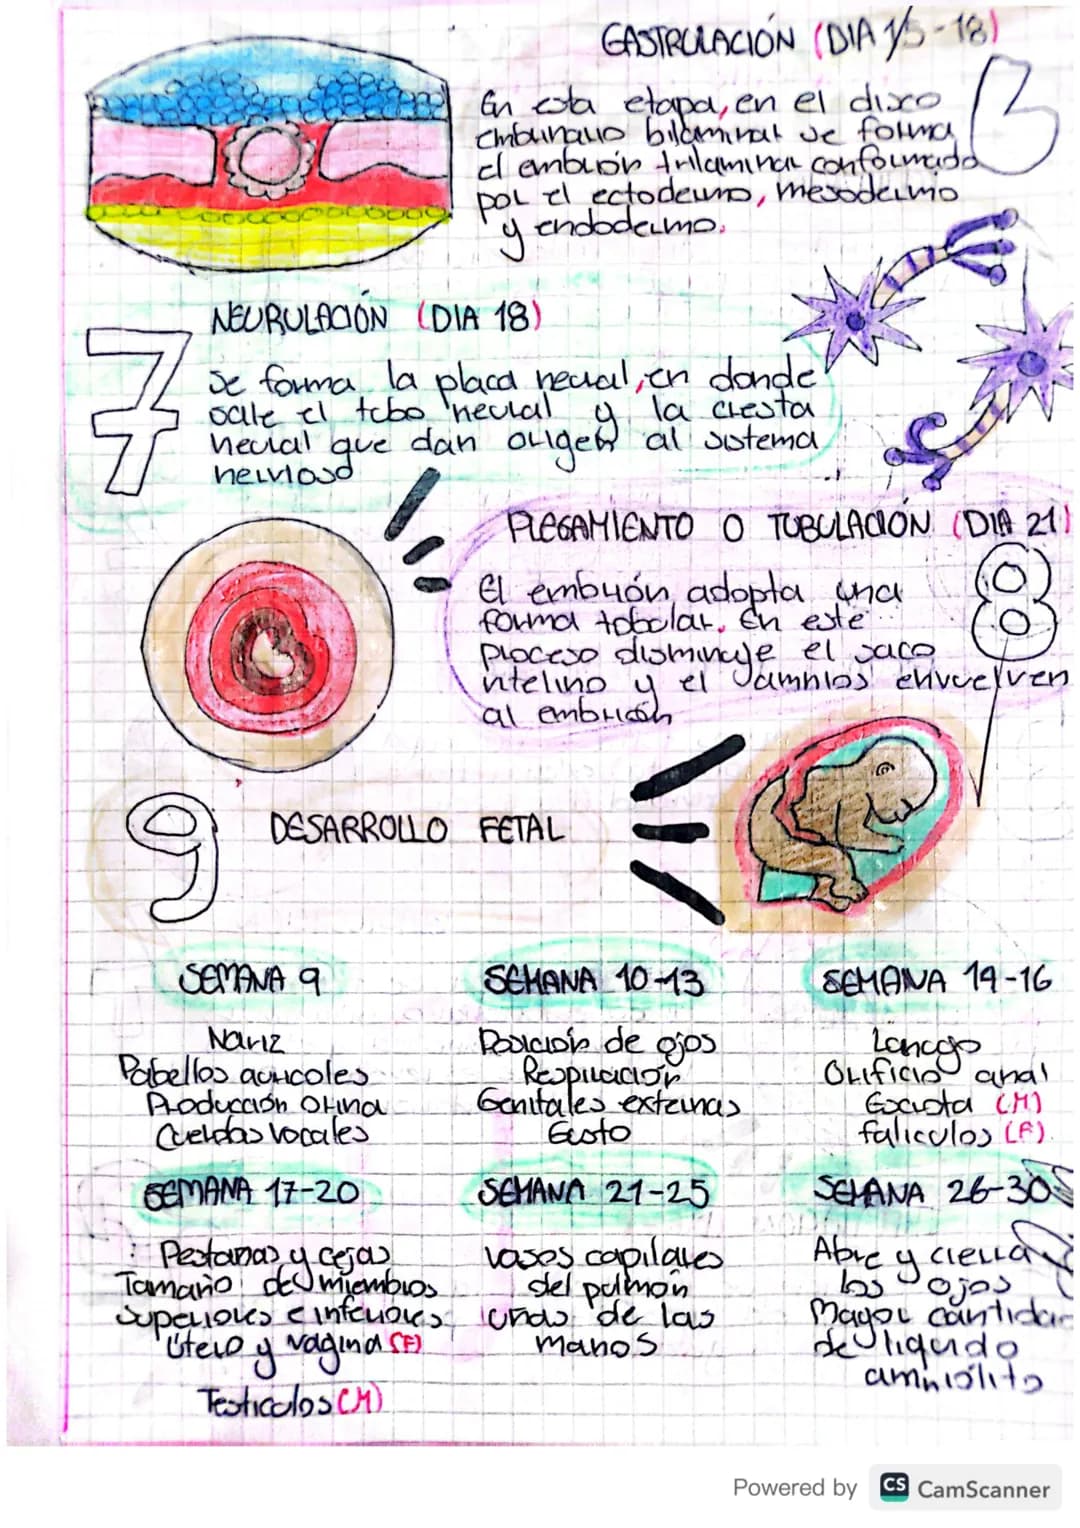 GASTRULACIÓN (DIA 15-18)
6
En esta etapa, en el disco
embrinario bilaminar se forma
el embrión trilaminar conformado
por el ectodermo, mesodermo
y endodermo.
7
NEURULACIÓN (DIA 18)
Se forma la placa neural, en donde
sale el tubo neural y la cresta
neural que dan origen al sistema
nervioso
PLEGAMIENTO O TUBULACIÓN (DIA 21)
8
El embrión adopta una
forma tobular. En este
proceso disminuye el saco
vitelino y el amnios envuelven
al embrión
9
DESARROLLO FETAL
SEMANA 9
Nariz
Pabellos auricoles
Producción Orina
Cuerdas vocales
SEMANA 10-13
Posición de ojos
Respiración
Genitales externas
Gusto
SEMANA 14-16
Lanugo
Orificio anal
(M)
faliculos (F)
SEMANA 17-20
Pestañas y cejas
Tamaño de miembros
superiores e inferiores
Útero y vagina (F)
Testiculos (M)
SEMANA 21-25
Vasos capilares
del pulmón
Uñas de las
manos
SEMANA 26-30
Abre y cierra
los ojos
Mayor cantidad
de liquido
amniólito
Powered by CS CamScanner